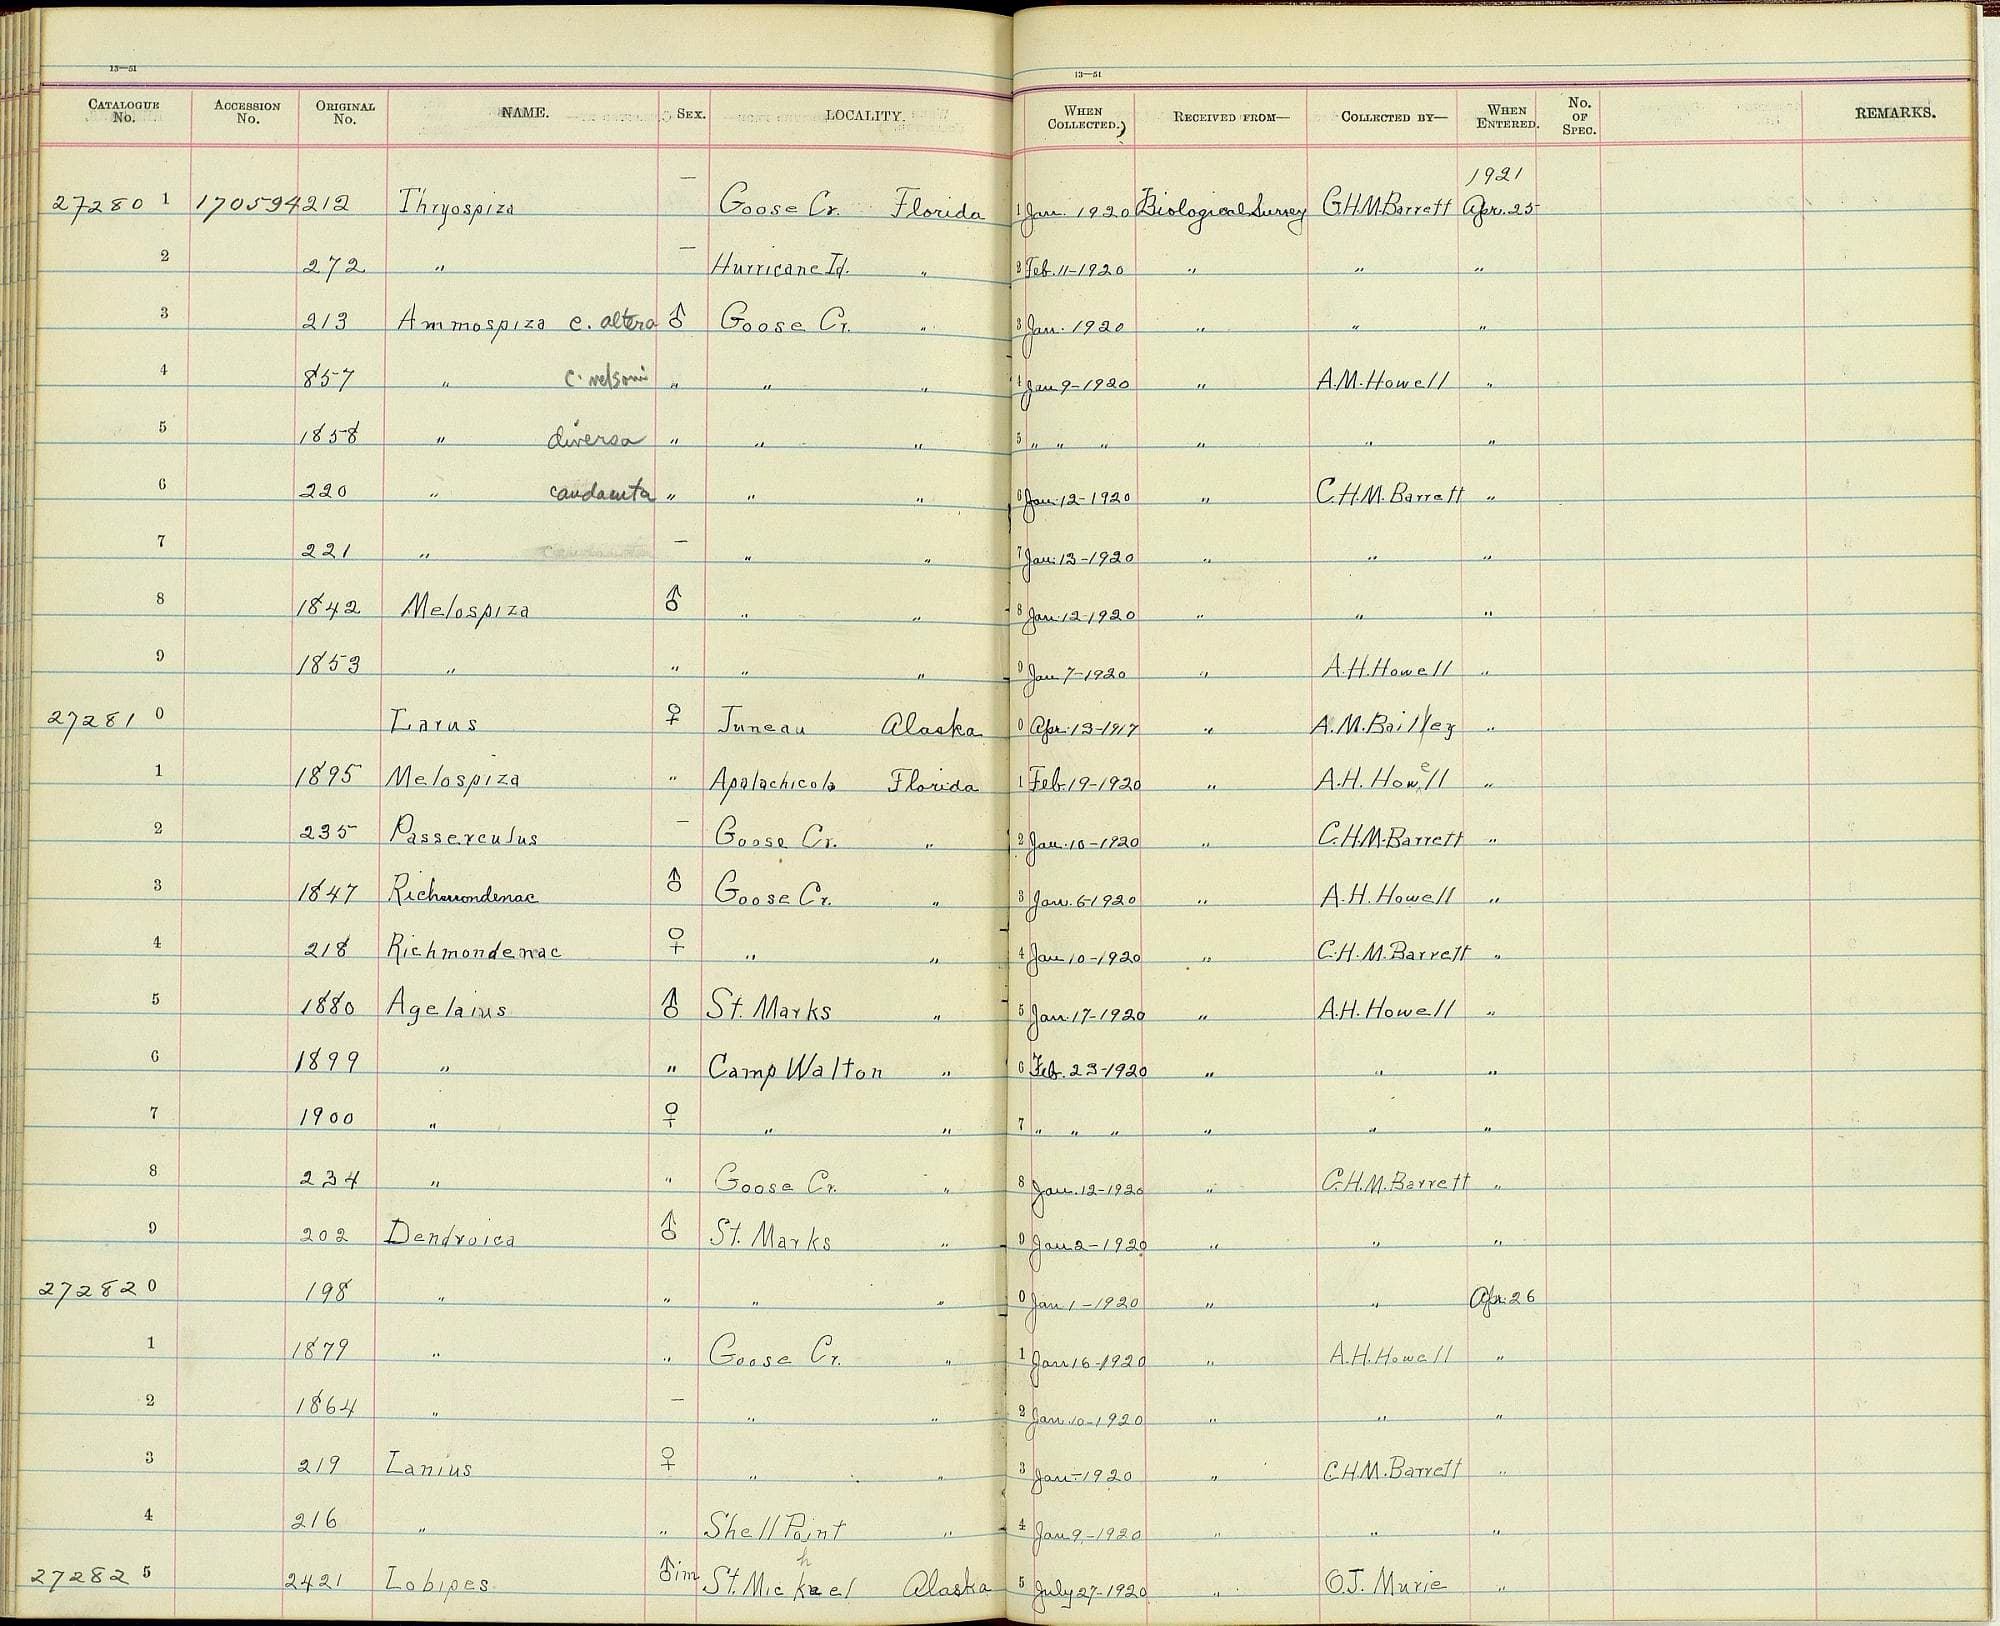 13—51 13—51
CATALOGUE No. ACCESSION No. ORIGINAL No. NAME. SEX. LOCALITY. WHEN COLLECTED. RECEIVED FROM— COLLECTED BY— WHEN ENTERED. No. OF SPEC. REMARKS.
1921
27280 1 170594 212 Thryospiza — Goose Cr. Florida 1 Jan. 1920 Biological Survey C.H.M. Barrett Apr. 25
2 272 " — Hurricane Id. " 2 Feb. 11-1920 " " "
3 213 Ammospiza c. altera ♂ Goose Cr. " 3 Jan. 1920 " " "
4 857 " c. nelsoni " " " 4 Jan 9-1920 " A.M. Howell "
5 1858 " diversa " " " 5 " " " " " "
6 220 " caudacuta " " " 6 Jan. 12-1920 " C.H.M. Barrett "
7 221 " — " " 7 Jan. 13-1920 " " "
8 1842 Melospiza ♂ " " 8 Jan. 12-1920 " " "
9 1853 " " " " 9 Jan 7-1920 " A.H. Howell "
27281 0 Larus ♀ Juneau Alaska 0 Apr. 13-1917 " A.M. Bailey "
1 1895 Melospiza " Apalachicola Florida 1 Feb. 19-1920 " A.H. Howell "
2 235 Passerculus — Goose Cr. " 2 Jan. 10-1920 " C.H.M. Barrett "
3 1847 Richmondenac ♂ Goose Cr. " 3 Jan. 6-1920 " A.H. Howell "
4 218 Richmondenac ♀ " " 4 Jan 10-1920 " C.H.M. Barrett "
5 1880 Agelaius ♂ St. Marks " 5 Jan. 17-1920 " A.H. Howell "
6 1899 " " Camp Walton " 6 Feb. 23-1920 " " "
7 1900 " ♀ " " 7 " " " " " "
8 234 " " Goose Cr. " 8 Jan. 12-1920 " C.H.M. Barrett "
9 202 Dendroica ♂ St. Marks " 9 Jan 2-1920 " " "
27282 0 198 " " " " 0 Jan 1-1920 " " Apr. 26
1 1879 " " Goose Cr. " 1 Jan 16-1920 " A.H. Howell "
2 1864 " — " " 2 Jan. 10-1920 " " "
3 219 Lanius ♀ " " 3 Jan-1920 " C.H.M. Barrett "
4 216 " " Shell Point " 4 Jan 9,-1920 " " "
27282 5 2421 Lobipes ♂im St. Michael Alaska 5 July 27-1920 " O.J. Murie "